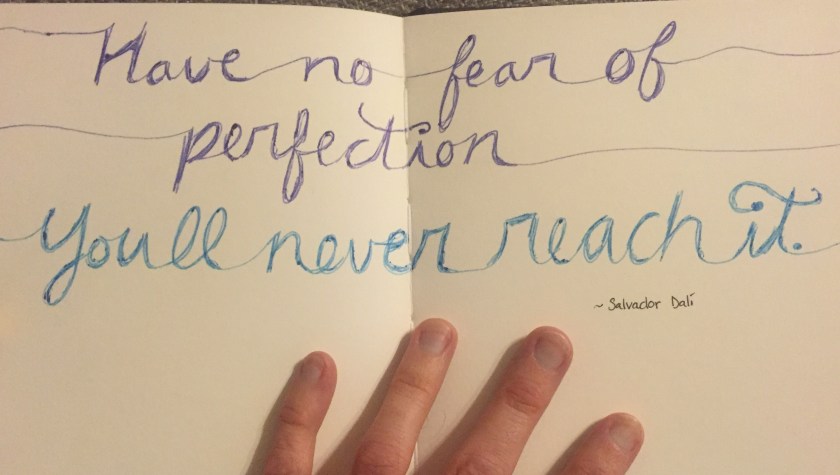 Have no fear of
perfection
Youll never reach it.
~ Salvador Dalí